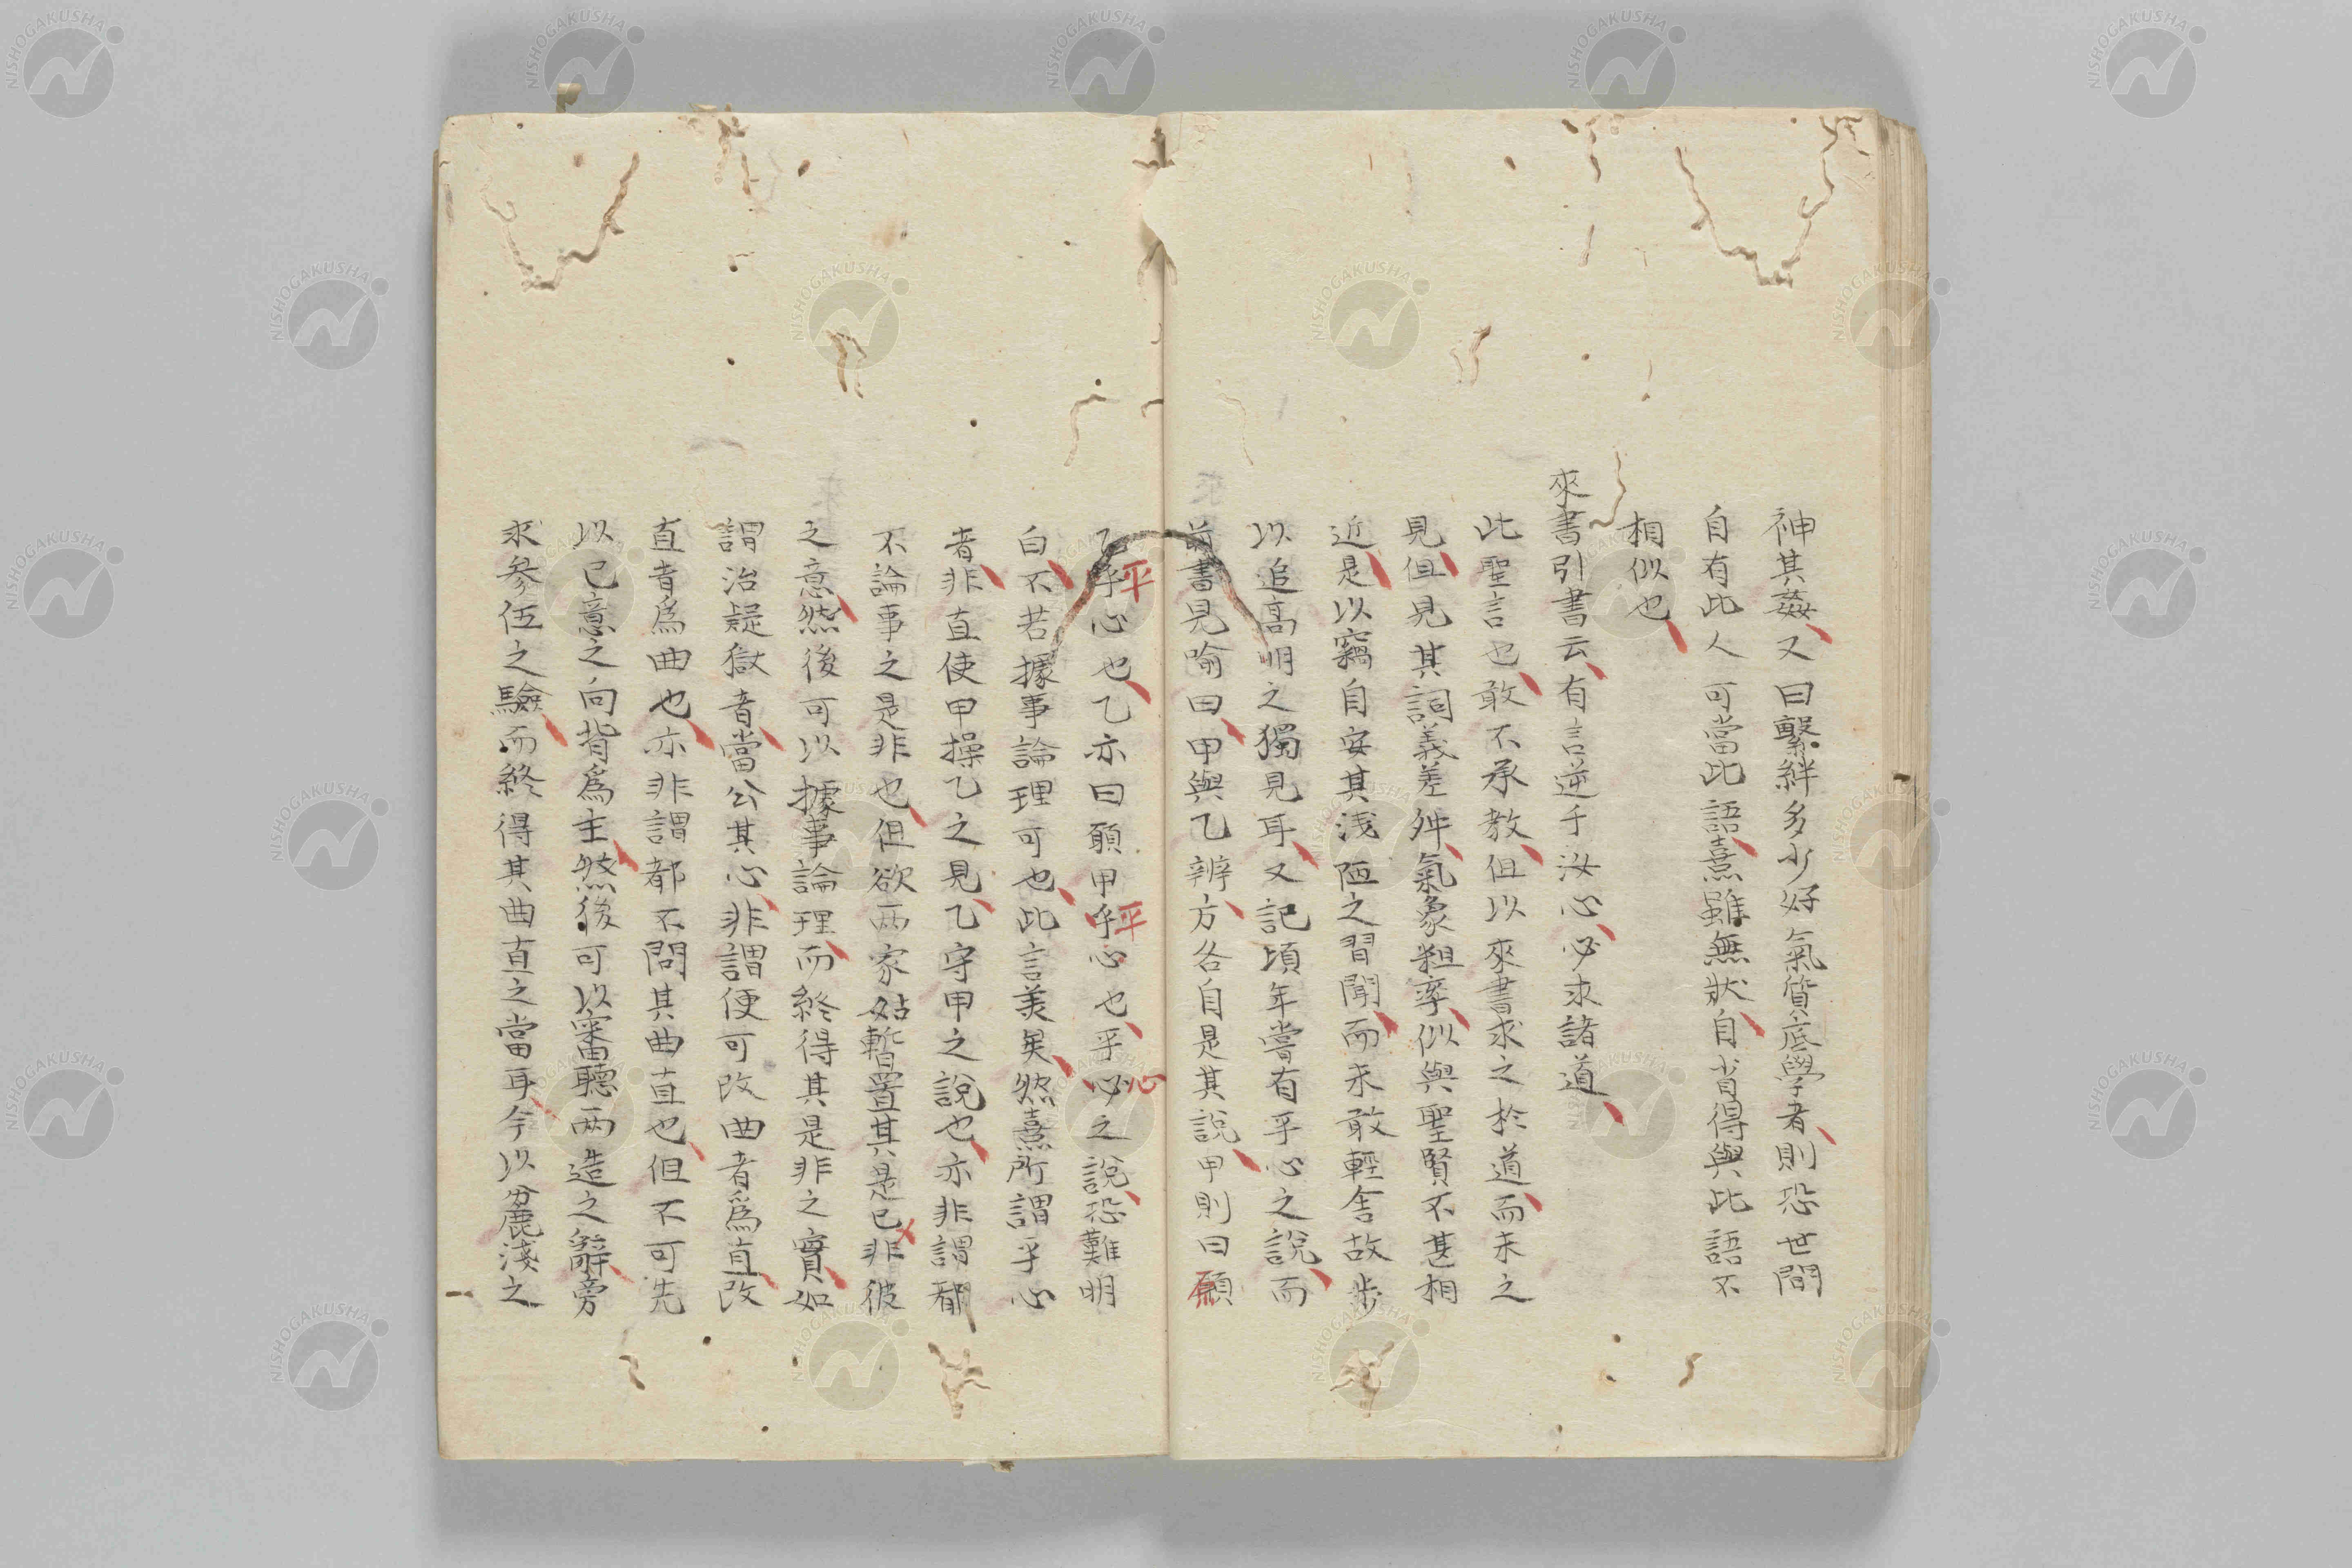 神其姦又曰繫絆多少好氣質底學者則恐世間
自有此人可當此語熹雖無狀自省得與此語不
相似也
來書引書云有言逆于汝心必求諸道
此聖言也敢不承教但以來書求之於道而未之
見但見其詞義差舛氣象粗率似與聖賢不甚相
近是以竊自安其浅陋之習聞而未敢輕舍故步
以追高明之獨見耳又記頃年嘗有乎心之說而
前書見喻曰甲與乙辨方各自是其說甲則曰願
乙乎心也乙亦曰願甲乎心也乎必之說恐難明
平
平
心
白不若據事論理可也此言美矣然熹所謂乎心
者非直使甲操乙之見乙守甲之說也亦非謂都
不論事之是非也但欲两家姑暫置其是已非彼
之意然後可以據事論理而終得其是非之實如
謂治疑獄者當公其心非謂便可改曲者爲直改
直者爲曲也亦非謂都不問其曲直也但不可先
以已意之向背爲主然後可以審聽两造之辭旁
求參伍之驗而終得其曲直之當耳今以麄淺之
NISHOGAKUSHA